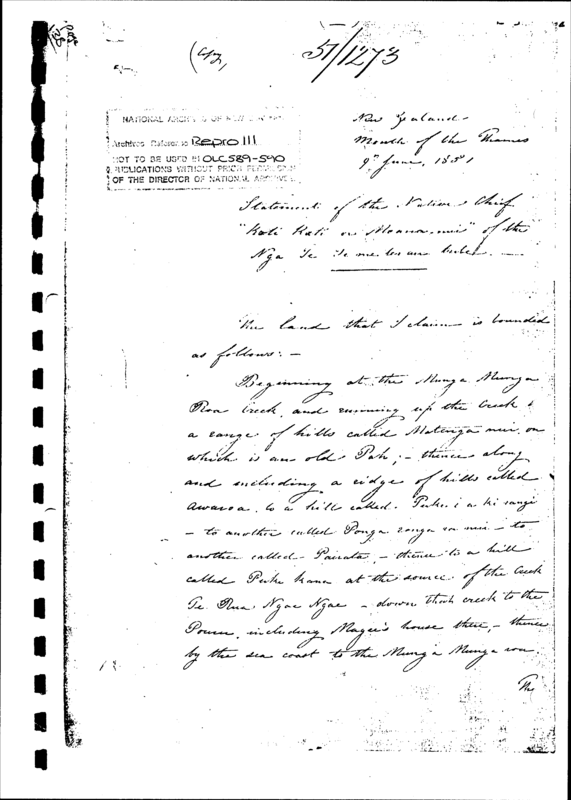 (Copy)
51/1273
NATIONAL ARCHIVES OF NEW ZEALAND
Archives Reference Repro 111
NOT TO BE USED IN OLC 589-590
PUBLICATIONS WITHOUT PRIOR PERMISSION
OF THE DIRECTOR OF NATIONAL ARCHIVES
New Zealand
Mouth of the Thames
9th June, 1851
Statement of the Native Chief
"Kati Kati or Moananui" of the
Nga Te tribe.
The land that I claim is bounded
as follows: -
Beginning at the Munga Munga
Roa Creek, and running up the Creek to
a range of hills called Matinga nui, on
which is an old Pah; - thence along
and including a ridge of hills called
Awaroa, to a hill called. rangi
- to another called Ponga ronga ra nui - to
another called - Pairata, - thence to a hill
called Puke hana at the source of the Creek
Te Rua Ngae Ngae - down that creek to the
Powen, including Magee's house there, - thence
by the sea coast to the Munga Munga roa.
The